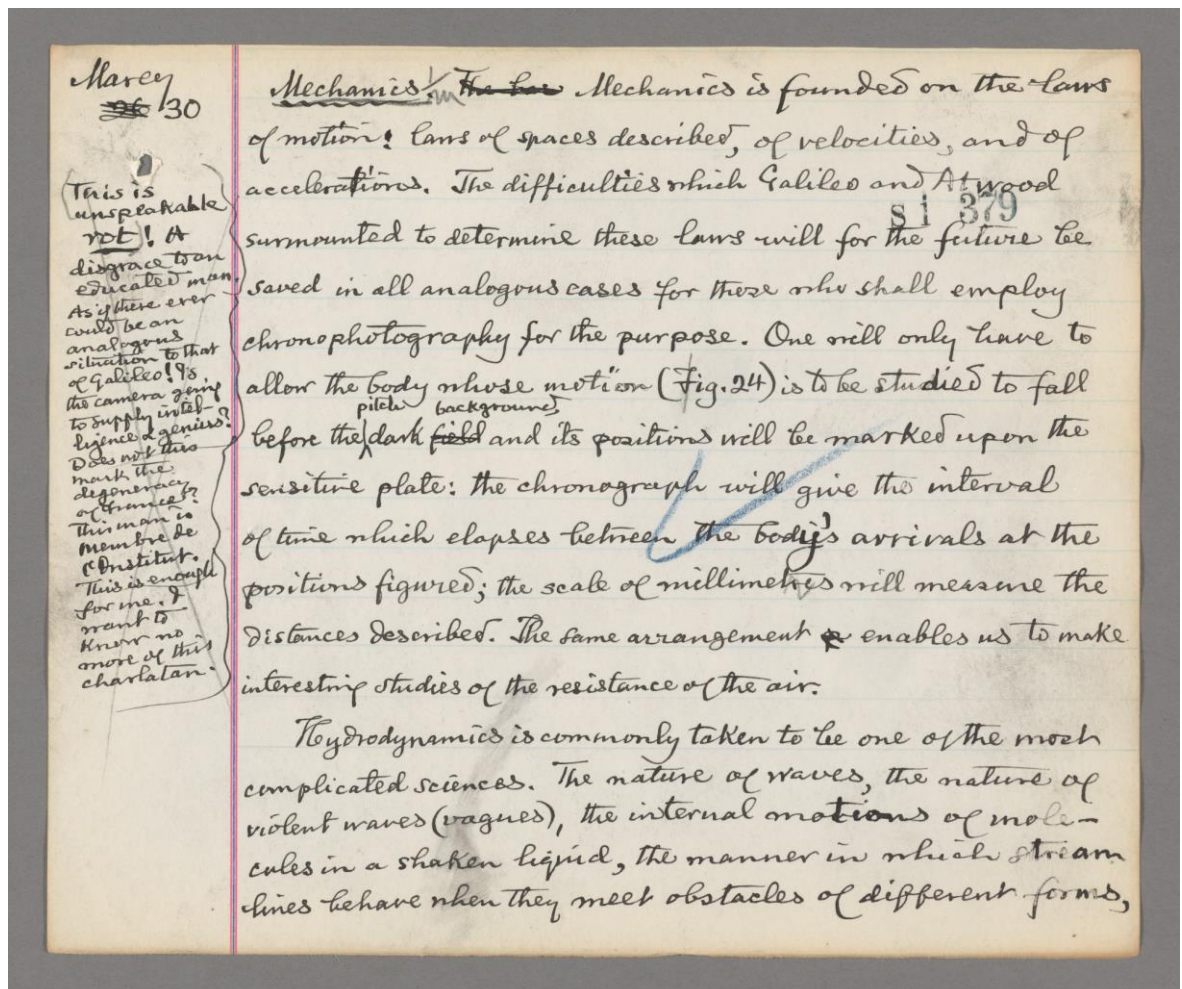 Marey
30
(This is
unspeakable
rot! A
disgrace to an
educated man.
As if there ever
could be an
analogous
situation to that
of Galileo! Is
the camera going
to supply intel-
ligence & genius?
Does not this
mark the
degeneracy
of France?
This man is
Membre de
l'Institut.
This is enough
for me. I
want to
know no
more of this
charlatan.
Mechanics. The law Mechanics is founded on the laws
of motion: laws of spaces described, of velocities, and of
accelerations. The difficulties which Galileo and Atwood
S1 379
surmounted to determine these laws will for the future be
saved in all analogous cases for those who shall employ
chronophotography for the purpose. One will only have to
allow the body whose motion (Fig. 24) is to be studied to fall
pitch background,
before the dark field and its positions will be marked upon the
sensitive plate: the chronograph will give the interval
of time which elapses between the body's arrivals at the
positions figured; the scale of millimetres will measure the
distances described. The same arrangement enables us to make
interesting studies of the resistance of the air.
Hydrodynamics is commonly taken to be one of the most
complicated sciences. The nature of waves, the nature of
violent waves (vagues), the internal motions of mole-
cules in a shaken liquid, the manner in which stream
lines behave when they meet obstacles of different forms,